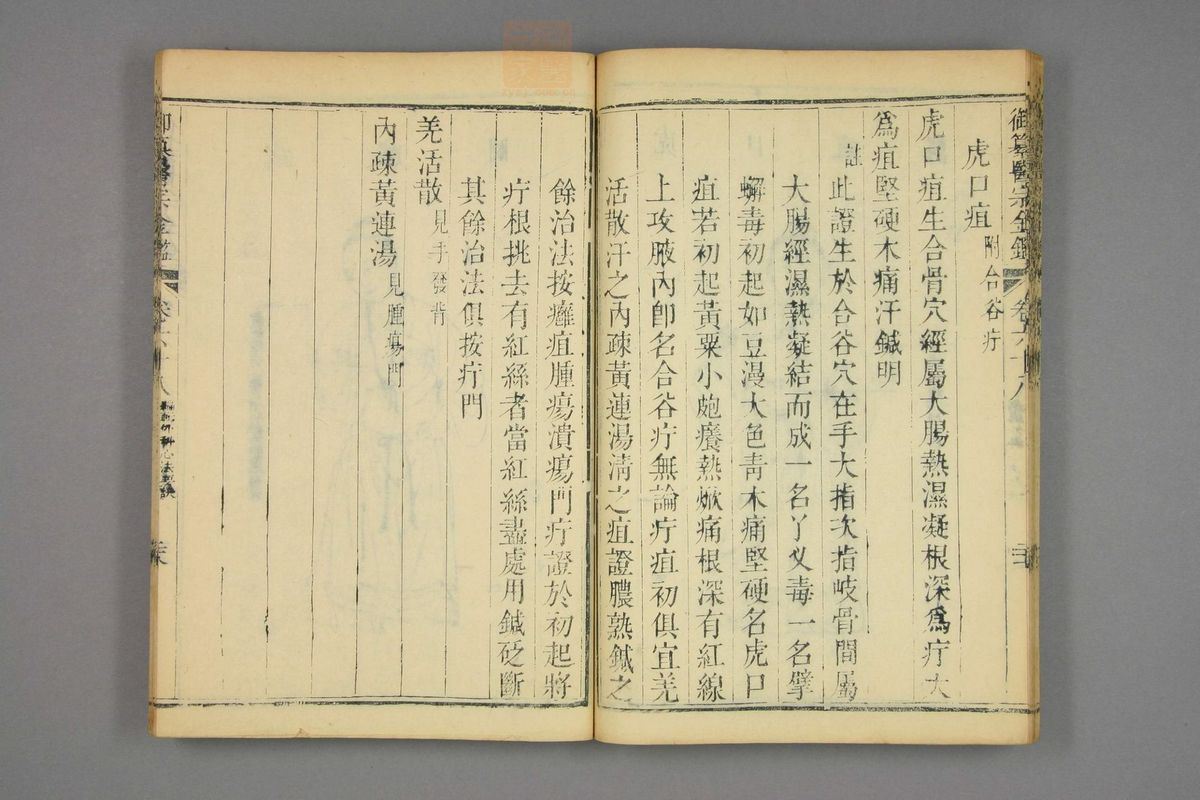 御纂醫宗金鑑 卷六十八
虎口疽 附合谷疔
虎口疽生合骨穴經屬大腸熱濕凝根深爲疔大
爲疽堅硬木痛汗鍼明
註 此證生於合谷穴在手大指次指岐骨間屬
大腸經濕熱凝結而成一名丫叉毒一名擘
蠏毒初起如豆漫大色靑木痛堅硬名虎口
疽若初起黃粟小皰癢熱焮痛根深有紅線
上攻腋內卽名合谷疔無論疔疽初俱宜羌
活散汗之內疎黃連湯淸之疽證膿熟鍼之
餘治法按癰疽腫瘍潰瘍門疔證於初起將
疔根挑去有紅絲者當紅絲盡處用鍼砭斷
其餘治法俱按疔門
羌活散 見手發背
內疎黃連湯 見腫瘍門
卷六十八